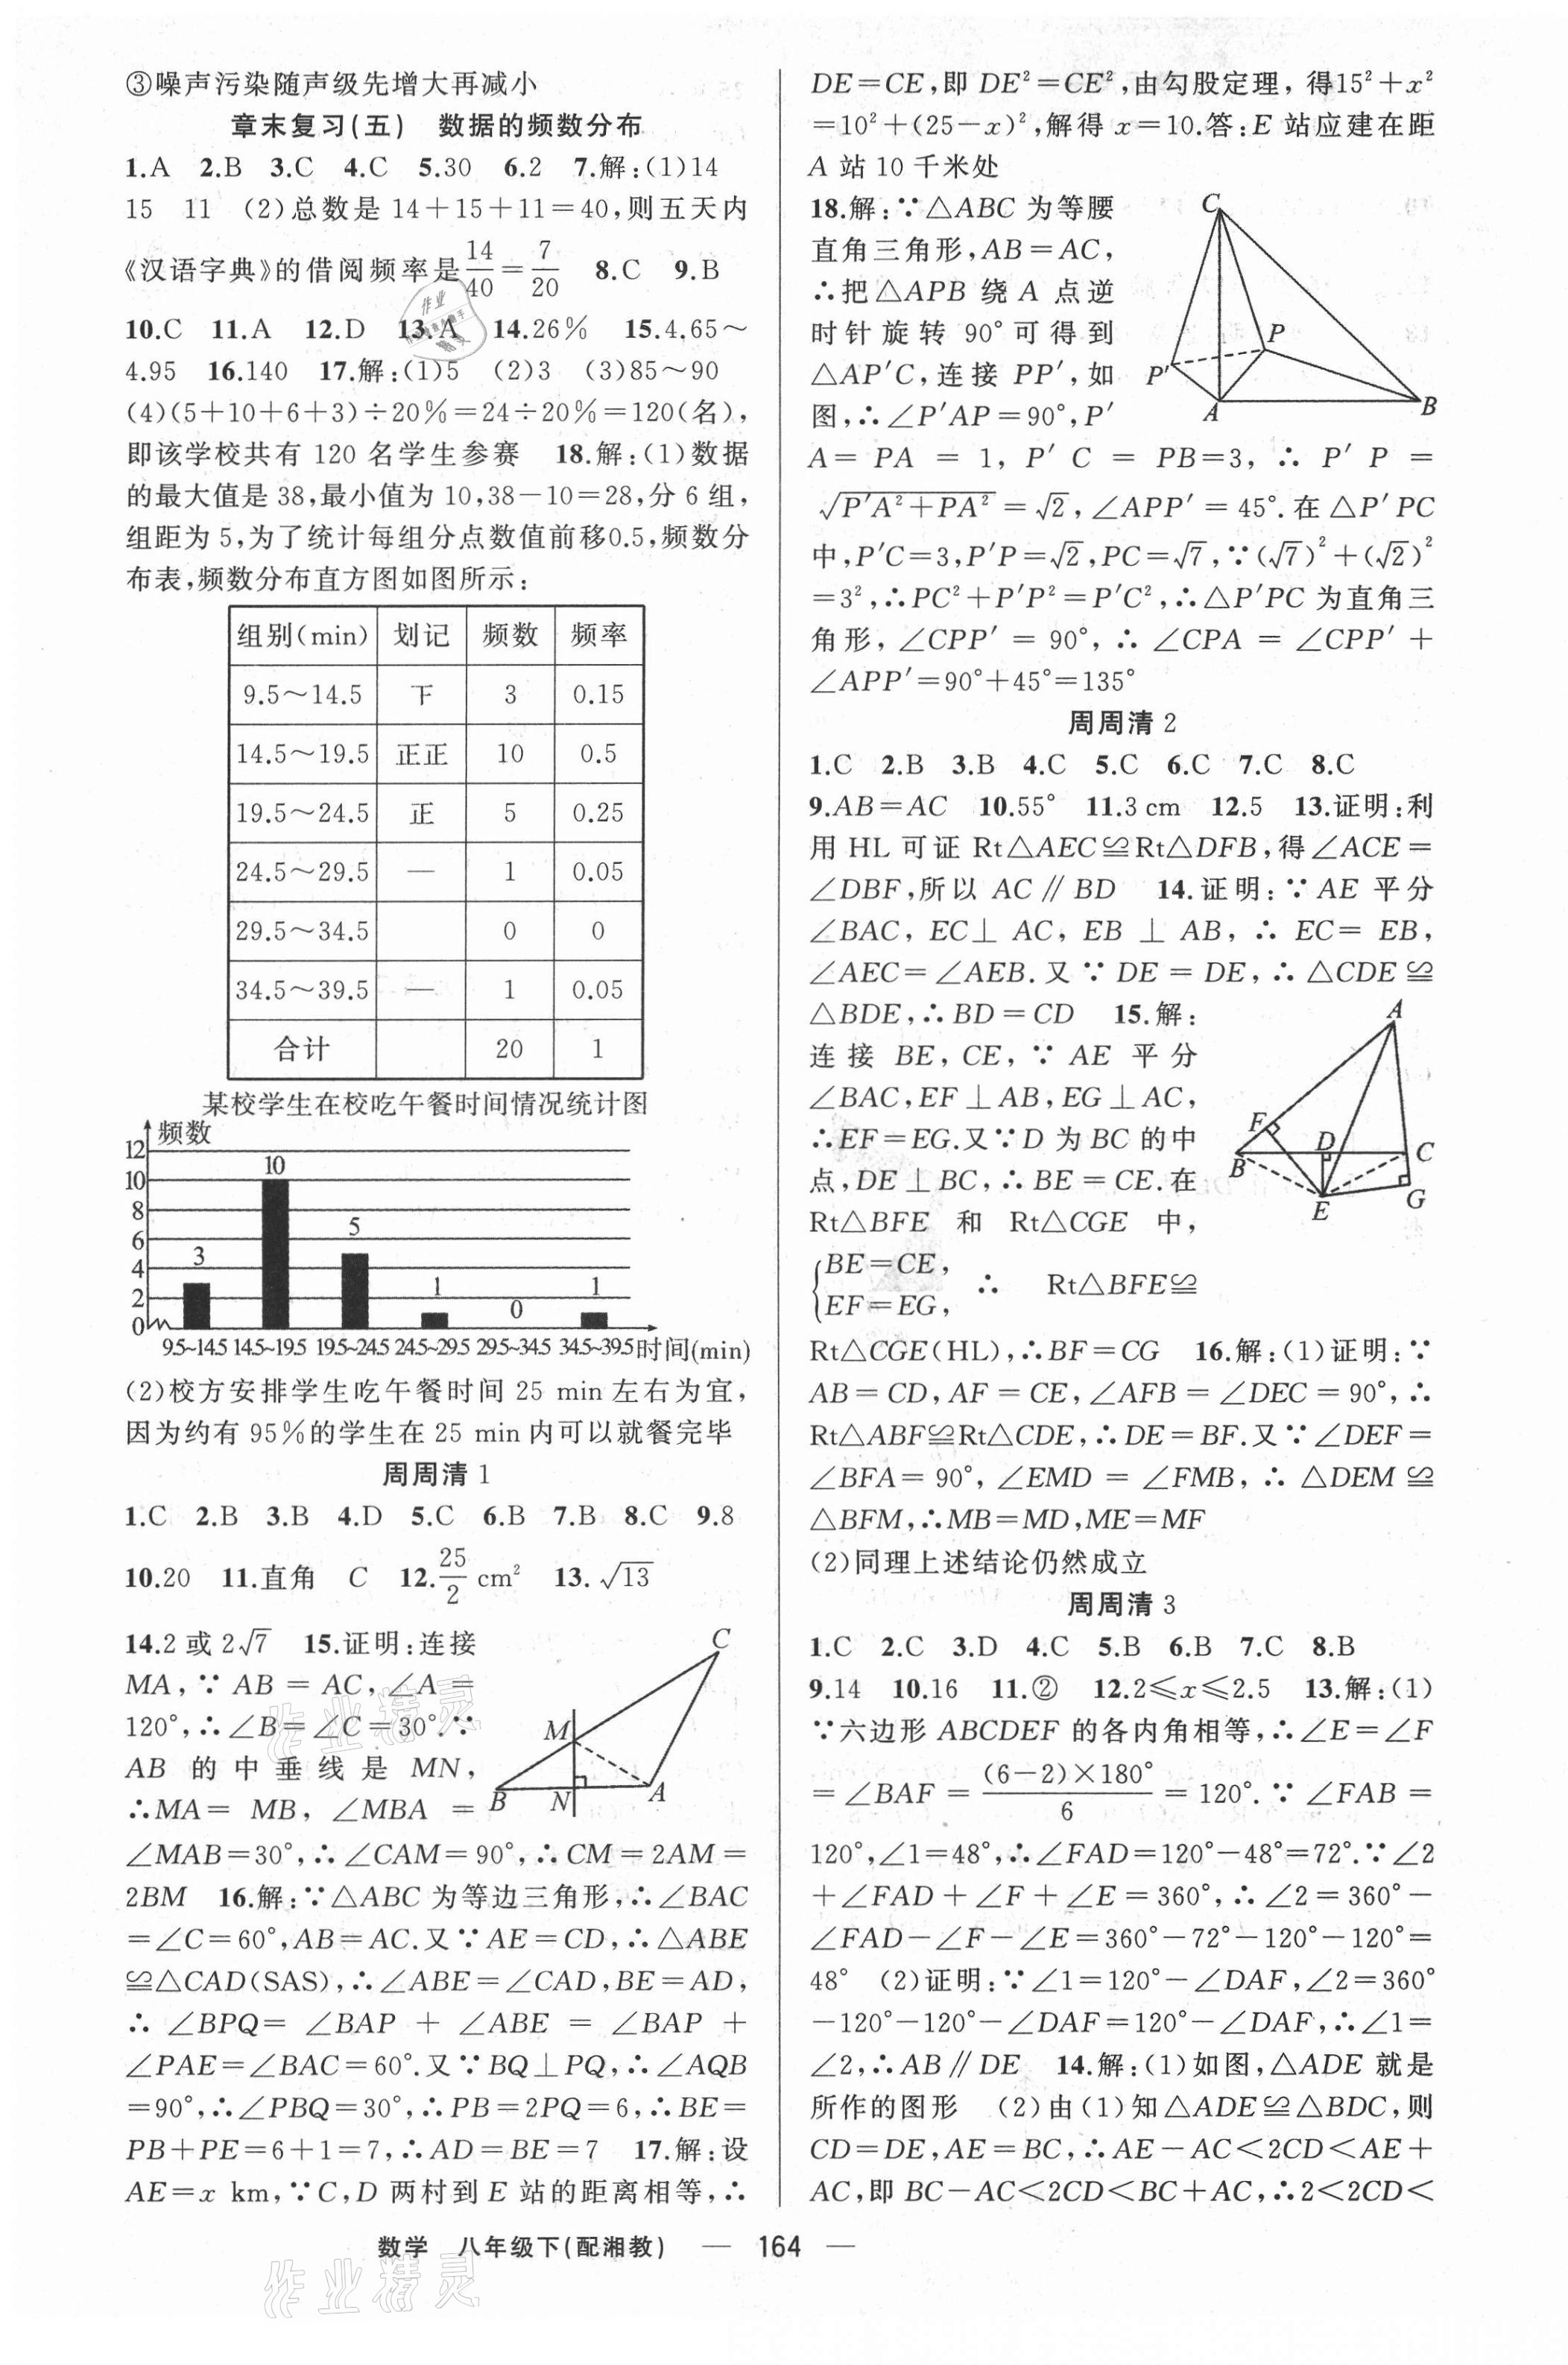 ③噪声污染随声级先增大再减小
章末复习(五) 数据的频数分布
1.A 2.B 3.C 4.C 5.30 6.2 7.解:(1)14
15 11 (2)总数是14+15+11=40,则五天内
《汉语字典》的借阅频率是14/40=7/20 8.C 9.B
10.C 11.A 12.D 13.A 14.26% 15.4.65~
4.95 16.140 17.解:(1)5 (2)3 (3)85~90
(4)(5+10+6+3)÷20%=24÷20%=120(名),
即该学校共有 120 名学生参赛 18.解:(1)数据
的最大值是 38,最小值为 10,38-10=28,分 6 组,
组距为 5,为了统计每组分点数值前移0.5,频数分
布表,频数分布直方图如图所示:
组别(min) 划记 频数 频率
9.5~14.5 下 3 0.15
14.5~19.5 正正 10 0.5
19.5~24.5 正 5 0.25
24.5~29.5 一 1 0.05
29.5~34.5 0 0
34.5~39.5 一 1 0.05
合计 20 1
某校学生在校吃午餐时间情况统计图
频数
12
10
8
6
4
2
0
3
10
5
1
0
1
9.5~14.5 14.5~19.5 19.5~24.5 24.5~29.5 29.5~34.5 34.5~39.5 时间(min)
(2)校方安排学生吃午餐时间 25 min左右为宜,
因为约有 95%的学生在 25 min内可以就餐完毕
周周清 1
1.C 2.B 3.B 4.D 5.C 6.B 7.B 8.C 9.8
10.20 11.直角 C 12.25/2 cm² 13.√13
14.2 或 2√7 15.证明:连接
MA,∵AB=AC,∠A=
120°,∴∠B=∠C=30°.∵
AB 的中垂线是 MN,
∴MA=MB,∠MBA=
C
M
B
N
A
∠MAB=30°,∴∠CAM=90°,∴CM=2AM=
2BM 16.解:∵△ABC 为等边三角形,∴∠BAC
=∠C=60°,AB=AC.又∵AE=CD,∴△ABE
≌△CAD(SAS),∴∠ABE=∠CAD,BE=AD,
∴∠BPQ=∠BAP+∠ABE=∠BAP+
∠PAE=∠BAC=60°.又∵BQ⊥PQ,∴∠AQB
=90°,∴∠PBQ=30°,∴PB=2PQ=6,∴BE=
PB+PE=6+1=7,∴AD=BE=7 17.解:设
AE=x km,∵C,D 两村到 E 站的距离相等,∴
DE=CE,即 DE²=CE²,由勾股定理,得15²+x²
=10²+(25-x)²,解得 x=10.答:E 站应建在距
A 站 10 千米处
18.解:∵△ABC 为等腰
直角三角形,AB=AC,
∴把△APB 绕 A 点逆
时针旋转 90°可得到
△AP′C,连接 PP′,如
图,∴∠P′AP=90°,P′
C
P
P′
A
B
A=PA=1,P′C=PB=3,∴P′P=
√(P′A²+PA²)=√2,∠APP′=45°.在△P′PC
中,P′C=3,P′P=√2,PC=√7,∵(√7)²+(√2)²
=3²,∴PC²+P′P²=P′C²,∴△P′PC 为直角三
角形,∠CPP′=90°,∴∠CPA=∠CPP′+
∠APP′=90°+45°=135°
周周清 2
1.C 2.B 3.B 4.C 5.C 6.C 7.C 8.C
9.AB=AC 10.55° 11.3 cm 12.5 13.证明:利
用 HL 可证 Rt△AEC≌Rt△DFB,得∠ACE=
∠DBF,所以 AC∥BD 14.证明:∵AE 平分
∠BAC,EC⊥AC,EB⊥AB,∴EC=EB,
∠AEC=∠AEB.又∵DE=DE,∴△CDE≌
△BDE,∴BD=CD 15.解:
连接 BE,CE,∵AE 平分
∠BAC,EF⊥AB,EG⊥AC,
∴EF=EG.又∵D 为 BC 的中
点,DE⊥BC,∴BE=CE.在
Rt△BFE 和 Rt△CGE 中,
{BE=CE,
EF=EG, ∴ Rt△BFE≌
A
F
B
D
C
E
G
Rt△CGE(HL),∴BF=CG 16.解:(1)证明:∵
AB=CD,AF=CE,∠AFB=∠DEC=90°,∴
Rt△ABF≌Rt△CDE,∴DE=BF.又∵∠DEF=
∠BFA=90°,∠EMD=∠FMB,∴△DEM≌
△BFM,∴MB=MD,ME=MF
(2)同理上述结论仍然成立
周周清 3
1.C 2.C 3.D 4.C 5.B 6.B 7.C 8.B
9.14 10.16 11.② 12.2≤x≤2.5 13.解:(1)
∵六边形 ABCDEF 的各内角相等,∴∠E=∠F
=∠BAF=(6-2)×180°/6=120°.∵∠FAB=
120°,∠1=48°,∴∠FAD=120°-48°=72°.∵∠2
+∠FAD+∠F+∠E=360°,∴∠2=360°-
∠FAD-∠F-∠E=360°-72°-120°-120°=
48° (2)证明:∵∠1=120°-∠DAF,∠2=360°
-120°-120°-∠DAF=120°-∠DAF,∴∠1=
∠2,∴AB∥DE 14.解:(1)如图,△ADE 就是
所作的图形 (2)由(1)知△ADE≌△BDC,则
CD=DE,AE=BC,∴AE-AC<2CD<AE+
AC,即 BC-AC<2CD<BC+AC,∴2<2CD<
数学 八年级下(配湘教) — 164 —
作业精灵
作业精灵